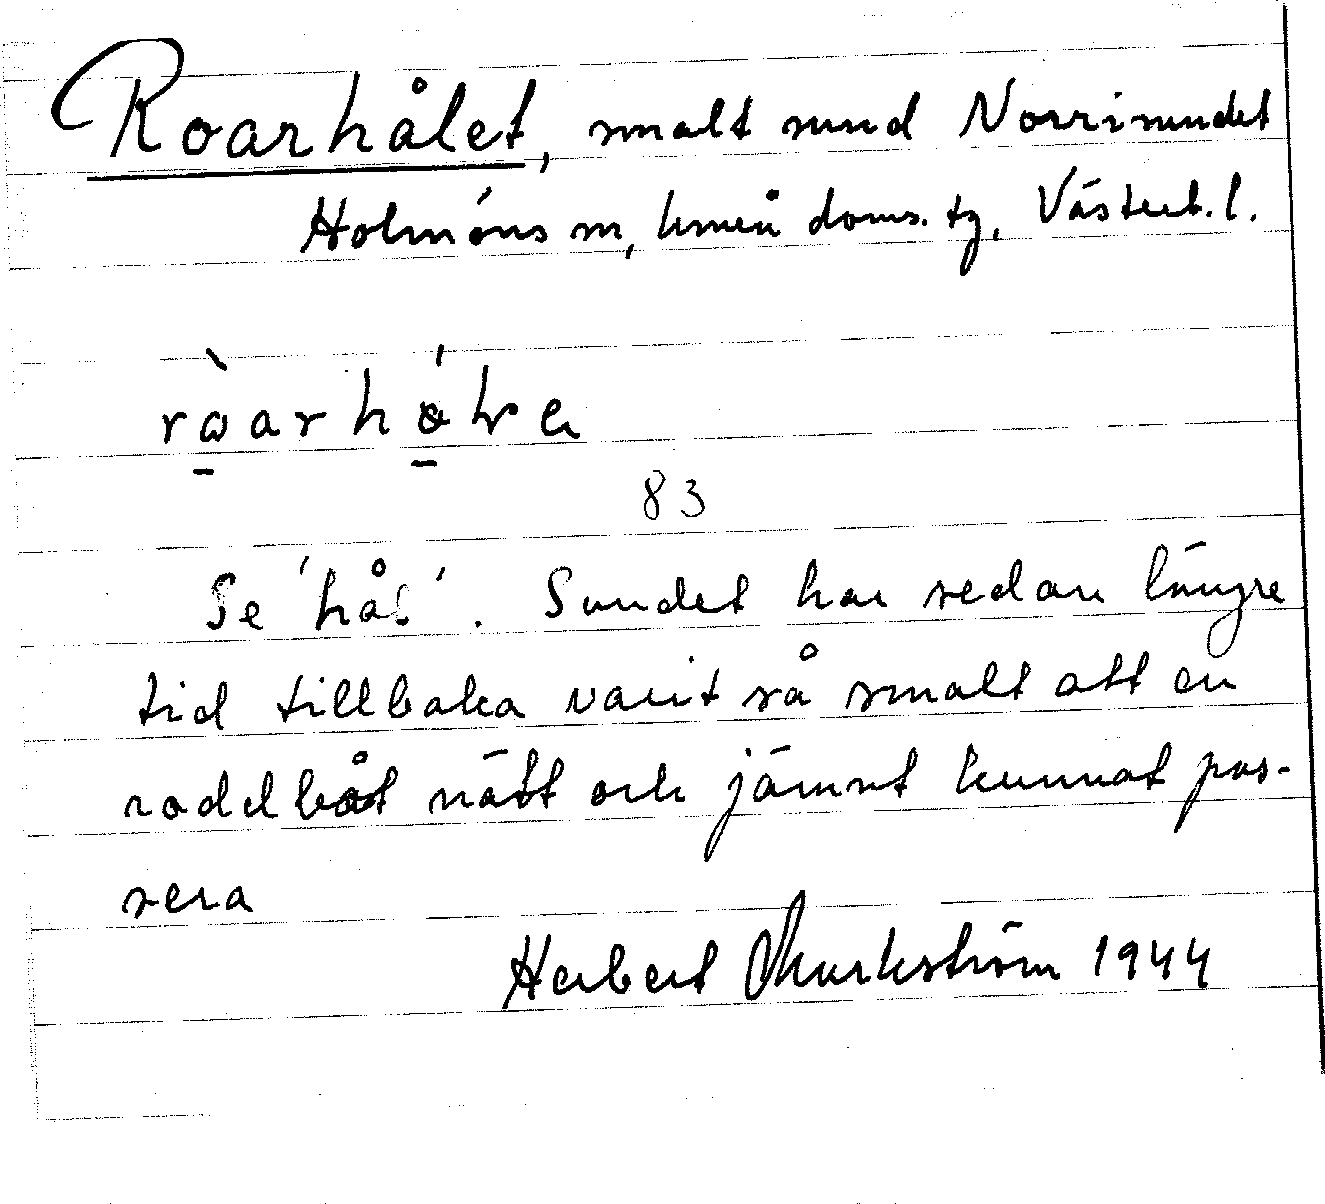 Roarhålet, smalt sund Norrisundet
Holmöns sn, Umeå doms. tg, Västerb. l.
83
Se 'hål'. Sundet har sedan längre
tid tillbaka varit så smalt att en
roddbåt nätt och jämnt kunnat pas-
sera
Herbert Markström 1944